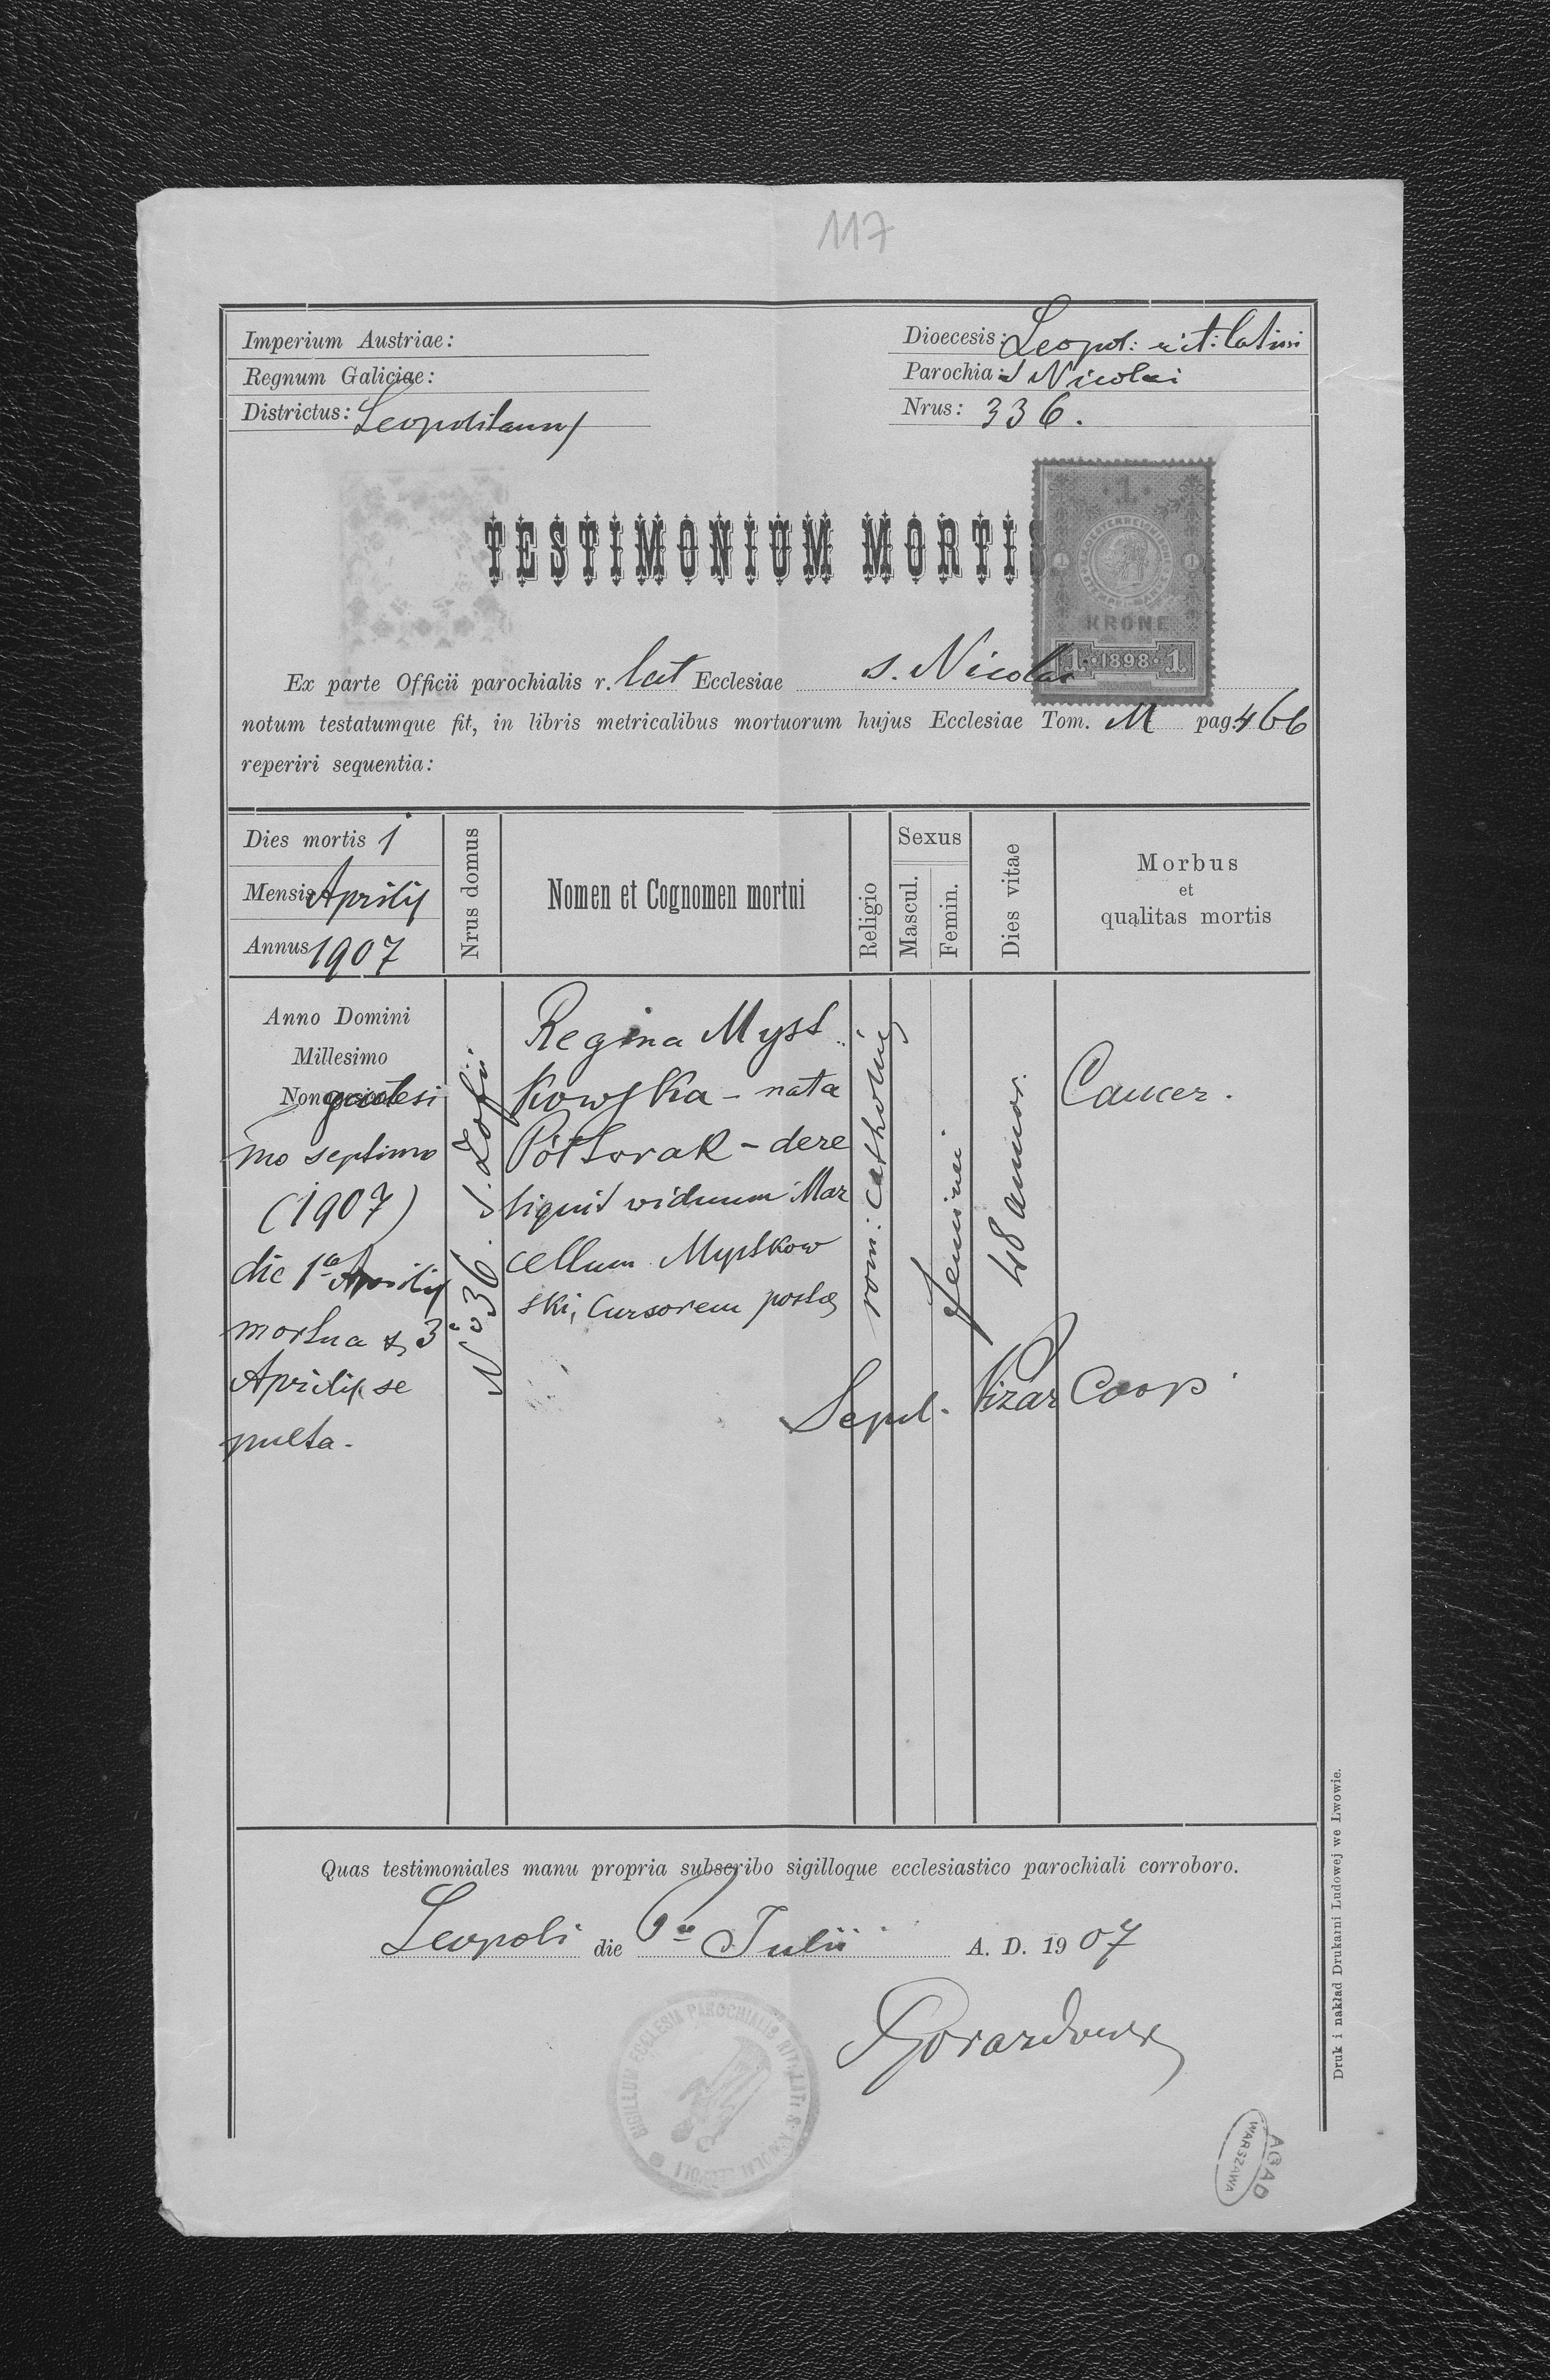 117
Imperium Austriae:
Regnum Galiciae:
Districtus: Leopolitanus
Dioecesis: Leopol: rit: latini
Parochia: S Nicolai
Nrus: 336.
TESTIMONIUM MORTIS
1
KRONE
1. 1898 1.
Ex parte Officii parochialis r. lat Ecclesiae S. Nicolai
notum testatumque fit, in libris metricalibus mortuorum hujus Ecclesiae Tom. M pag. 466
reperiri sequentia:
Dies mortis 1
Mensis Aprilis
Annus 1907
Nrus domus
Nomen et Cognomen mortui
Religio
Sexus
Mascul.
Femin.
Dies vitae
Morbus
et
qualitas mortis
Anno Domini
Millesimo
Nongentesi
mo septimo
(1907)
die 1a Aprilis
mortua & 3a
Aprilis se
pulta.
No 36. S. Zofii
Regina Mysł
kowska - nata
Półtorak - dere
liquit viduum Mar
cellum Mysłkow
ski, Cursorem postae
rom: catholic
feminei
48 annor.
Cancer.
Sepel. Nizar Coop
Quas testimoniales manu propria subscribo sigilloque ecclesiastico parochiali corroboro.
Leopoli die 6a Julii A. D. 1907
Gorazdowski
SIGILLUM ECCLESIA PAROCHIALIS RIT. LATI S. NICOLAI LEOPOLI
Druk i nakład Drukarni Ludowej we Lwowie.
AGAD
WARSZAWA